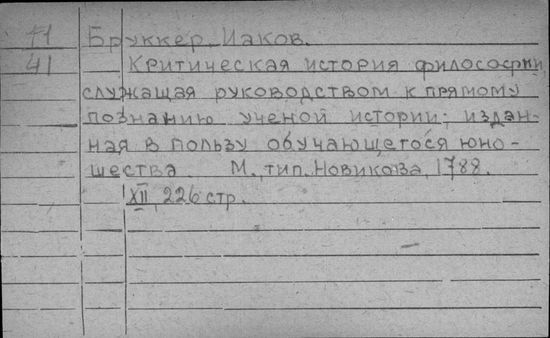 71 Бруккер, Иаков.
41 Критическая история философии,
служащая руководством к прямому
познанию ученой истории; издан-
ная в пользу обучающегося юно-
шества. М., тип. Новикова, 1788.
XII, 226 стр.